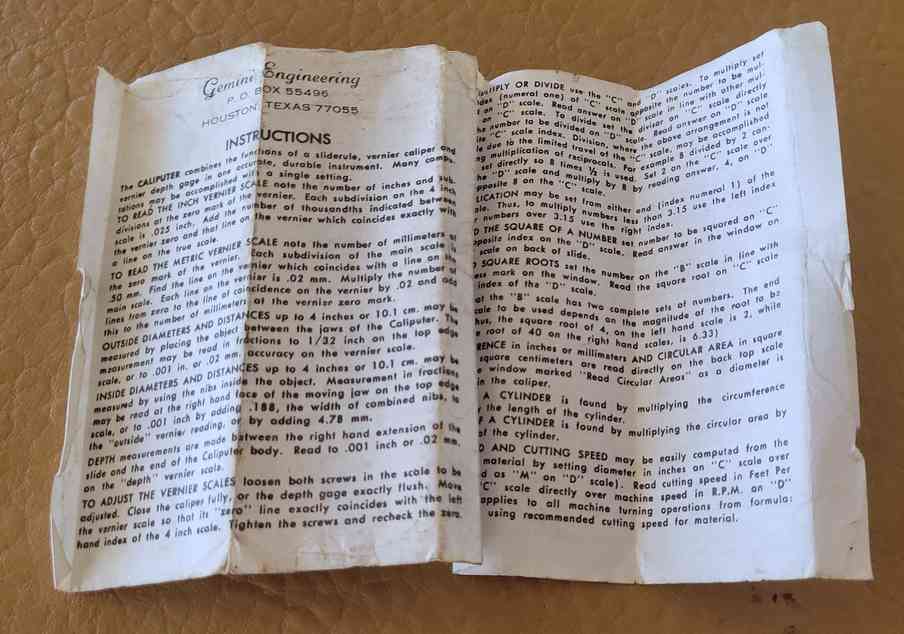 Gemini Engineering
P. O. BOX 55496
HOUSTON, TEXAS 77055
INSTRUCTIONS
The CALIPUTER combines the functions of a sliderule, vernier caliper and
vernier depth gage in one accurate, durable instrument. Many compu-
tations may be accomplished with a single setting.
TO READ THE INCH VERNIER SCALE note the number of inches and sub-
divisions at the zero mark of the vernier. Each subdivision on the 4 inch
scale is .025 inch. Add the number of thousandths indicated between
the vernier zero and that line on the vernier which coincides exactly with
a line on the true scale.
TO READ THE METRIC VERNIER SCALE note the number of millimeters at
the zero mark of the vernier. Each subdivision of the main scale is
.50 mm. Find the line on the vernier which coincides with a line on the
main scale. Each line on the vernier is .02 mm. Multiply the number of
lines from zero to the line of coincidence on the vernier by .02 and add
this to the number of millimeters at the vernier zero mark.
OUTSIDE DIAMETERS AND DISTANCES up to 4 inches or 10.1 cm. may be
measured by placing the object between the jaws of the Caliputer. The
measurement may be read in fractions to 1/32 inch on the top edge
scale, or to .001 in. or .02 mm. accuracy on the vernier scale.
INSIDE DIAMETERS AND DISTANCES up to 4 inches or 10.1 cm. may be
measured by using the nibs inside the object. Measurement in fractions
may be read at the right hand face of the moving jaw on the top edge
scale, or to .001 inch by adding .188, the width of combined nibs, to
the "outside" vernier reading, by adding 4.78 mm.
DEPTH measurements are made between the right hand extension of the
slide and the end of the Caliputer body. Read to .001 inch or .02 mm.
on the "depth" vernier scale.
TO ADJUST THE VERNIER SCALES loosen both screws in the scale to be
adjusted. Close the caliper fully, or the depth gage exactly flush. Move
the vernier scale so that its "zero" line exactly coincides with the left
hand index of the 4 inch scale. Tighten the screws and recheck the zero.
MULTIPLY OR DIVIDE use the "C" and "D" scales. To multiply set
index (numeral one) of "C" scale opposite the number to be mul-
on "D" scale. Read answer on "D" scale in line with other mul-
on "C" scale. To divide set the divisor on "C" scale directly
the number to be divided on "D" scale. Read answer on "D" scale
"C" scale index. Division, where the above arrangement is not
le due to the limited travel of the "C" scale, may be accomplished
ng multiplication of reciprocals. For example 8 divided by 2 can-
set directly so 8 times ½ is used. Set 2 on the "C" scale over
"D" scale and multiply by 8 by reading answer, 4, on "D"
opposite 8 on the "C" scale.
LICATION may be set from either end (index numeral 1) of the
ale. Thus, to multiply numbers less than 3.15 use the left index
r numbers over 3.15 use the right
D THE SQUARE OF A NUMBER set number to be squared on "C"
opposite index on the "D" scale. Read answer in the window on
scale on back of slide.
SQUARE ROOTS set the number on the "B" scale in line with
ess mark on the window. Read the square root on "C" scale
index of the "D" scale.
at the "B" scale has two complete sets of numbers. The end
cale to be used depends on the magnitude of the root to be
thus, the square root of 4, on the left hand scale is 2, while
e root of 40 on the right hand scales, is 6.33)
RENCE in inches or millimeters AND CIRCULAR AREA in square
square centimeters are read directly on the back top scale
e window marked "Read Circular Areas" as a diameter is
in the caliper.
A CYLINDER is found by multiplying the circumference
y the length of the cylinder.
F A CYLINDER is found by multiplying the circular area by
of the cylinder.
D AND CUTTING SPEED may be easily computed from the
material by setting diameter in inches on "C" scale over
d as "M" on "D" scale). Read cutting speed in Feet Per
"C" scale directly over machine speed in R.P.M. on "D"
applies to all machine turning operations from formula:
using recommended cutting speed for material.